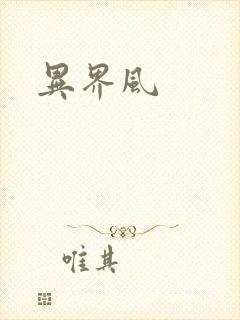 異界風
唯其